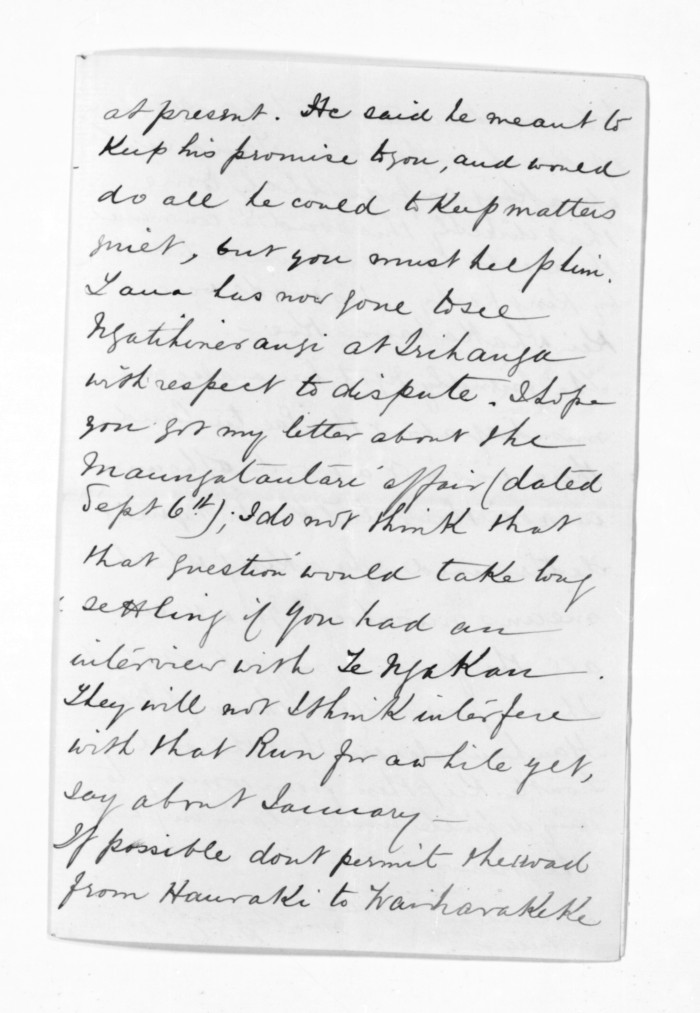 at present. He said he meant to
Keep his promise to you, and would
do all he could to Keep matters
quiet, but you must help him.
Tana has now gone to see
Ngatihinerangi at Irihanga
with respect to dispute. I hope
you got my letter about the
Maungatautari affair (dated
Sept 6th); I do not think that
that question would take long
settling if you had an
interview with Te Ngakau.
They will not I think interfere
with that Run for awhile yet,
say about January —
If possible dont permit the road
from Hauraki to Waiharakeke